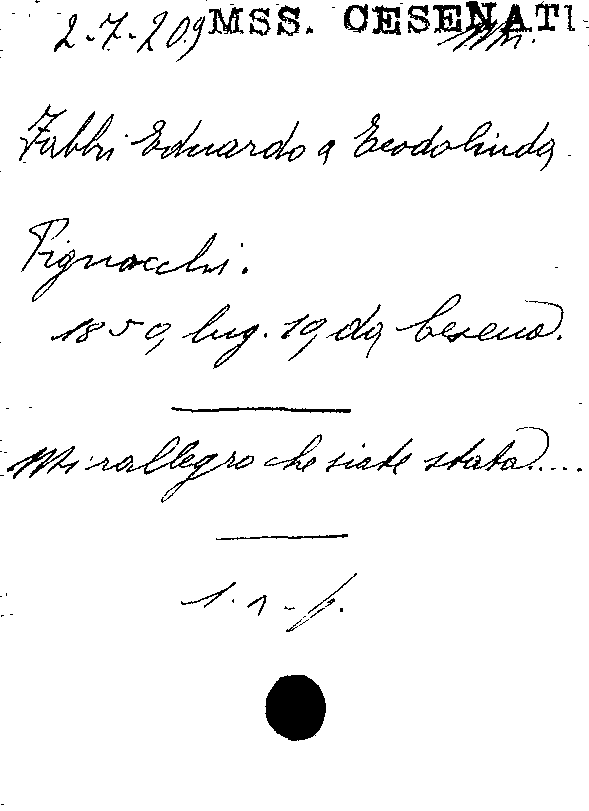 2-7-209 MSS. CESENATI
Fabbri Eduardo a Teodolinda
Pignocchi.
1850, lug. 19, da Cesena.
Mi rallegro che siate stata....
1. 1 - p.